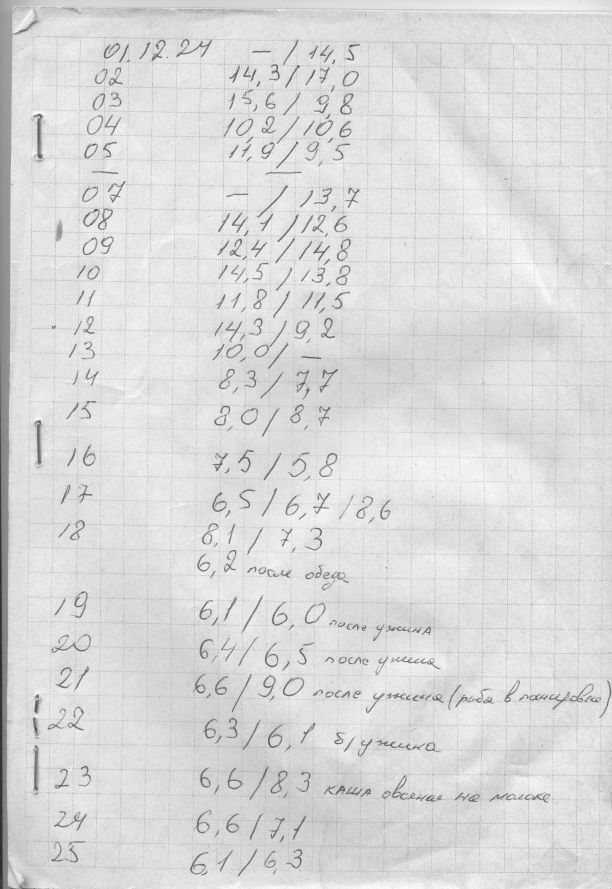 01.12.24 — / 14,5
02 14,3 / 17,0
03 15,6 / 9,8
04 10,2 / 10,6
05 11,9 / 9,5
— —
07 — / 13,7
08 14,1 / 12,6
09 12,4 / 14,8
10 14,5 / 13,8
11 11,8 / 11,5
12 14,3 / 9,2
13 10,0 / —
14 8,3 / 7,7
15 8,0 / 8,7
16 7,5 / 5,8
17 6,5 / 6,7 / 8,6
18 8,1 / 7,3
6,2 после обеда
19 6,1 / 6,0 после ужина
20 6,4 / 6,5 после ужина
21 6,6 / 9,0 после ужина (рыба в панировке)
22 6,3 / 6,1 б/ужина
23 6,6 / 8,3 каша овсяная на молоке
24 6,6 / 7,1
25 6,1 / 6,3